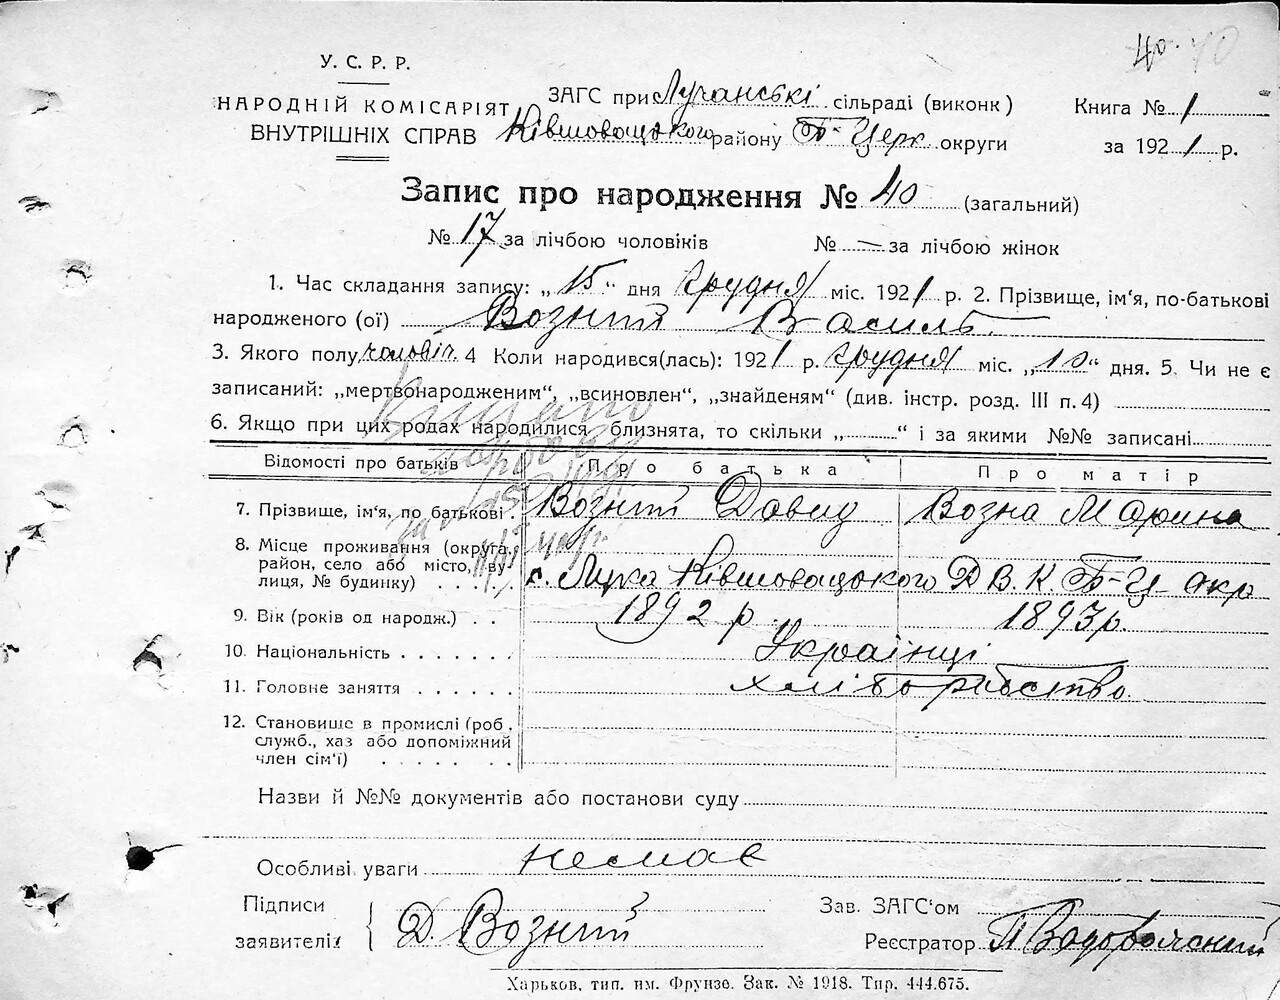 40. 40
У. С. Р. Р.
НАРОДНІЙ КОМІСАРІЯТ
ВНУТРІШНІХ СПРАВ
ЗАГС при Лучанські сільраді (виконк)
Ківшовацького району Б-Церк. округи
Книга № 1
за 1921 р.
Запис про народження № 40 (загальний)
№ 17 за лічбою чоловіків № — за лічбою жінок
1. Час складання запису: „15“ дня грудня міс. 1921 р. 2. Прізвище, ім'я, по-батькові
народженого (ої) Возний Василь.
3. Якого полу чоловіч. 4 Коли народився(лась): 1921 р. грудня міс. „10“ дня. 5. Чи не є
записаний: „мертвонародженим“, „всиновлен“, „знайденям“ (див. інстр. розд. III п. 4)
6. Якщо при цих родах народилися близнята, то скільки „ “ і за якими №№ записані
Відомості про батьків Про батька Про матір
7. Прізвище, ім'я, по батькові Возний Давид Возна Марина
8. Місце проживання (округа, район, село або місто, вулиця, № будинку) с. Лука Ківшовацького Д.В.К. Б-Ц окр
9. Вік (років од народж.) 1892 р 1893 р.
10. Національність Українці
11. Головне заняття хліборобство
12. Становище в промислі (роб.,
служб., хаз або допоміжний
член сім'ї)
Назви й №№ документів або постанови суду
Особливі уваги немає
Підписи
заявителів Д. Возний
Зав. ЗАГС'ом
Реєстратор
Харьков, тип. им. Фрунзе. Зак. № 1918. Тир. 444.675.